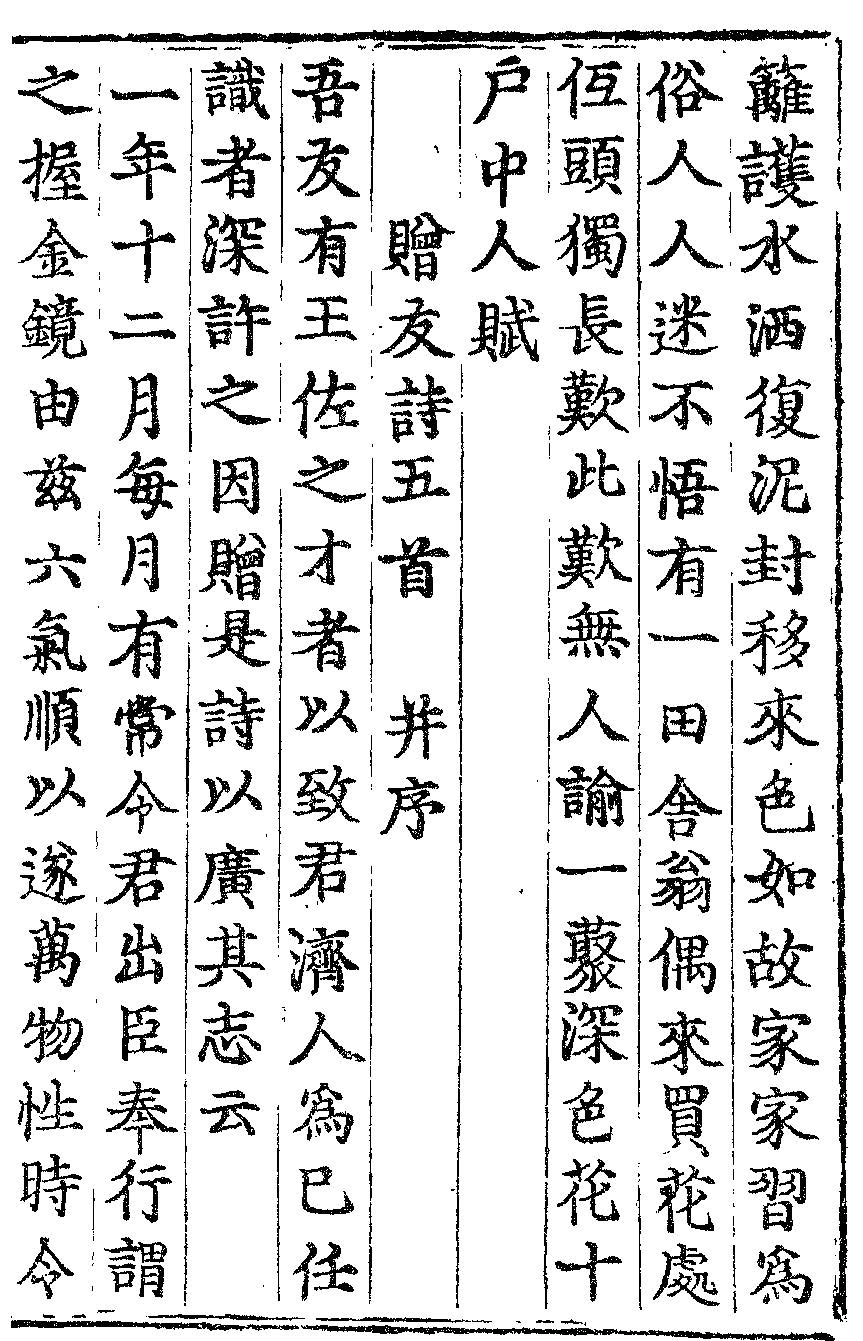 籬護水洒復泥封移來色如故家家習爲
俗人人迷不悟有一田舍翁偶來買花處
伍頭獨長歎此歎無人諭一藂深色花十
户中人賦
贈友詩五首　并序
吾友有王佐之才者以致君濟人爲巳任
識者深許之因贈是詩以廣其志云
一年十二月每月有常令君出臣奉行謂
之握金鏡由兹六氣順以遂萬物性時令